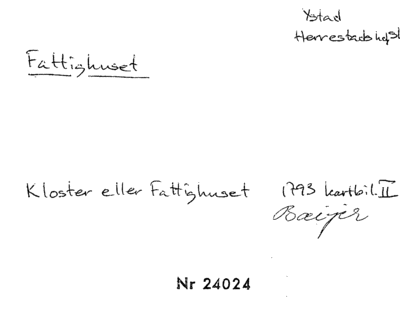 Ystad
Herrestads hd
Fattighuset
Kloster eller Fattighuset 1793 kartbil. II
Nr 24024